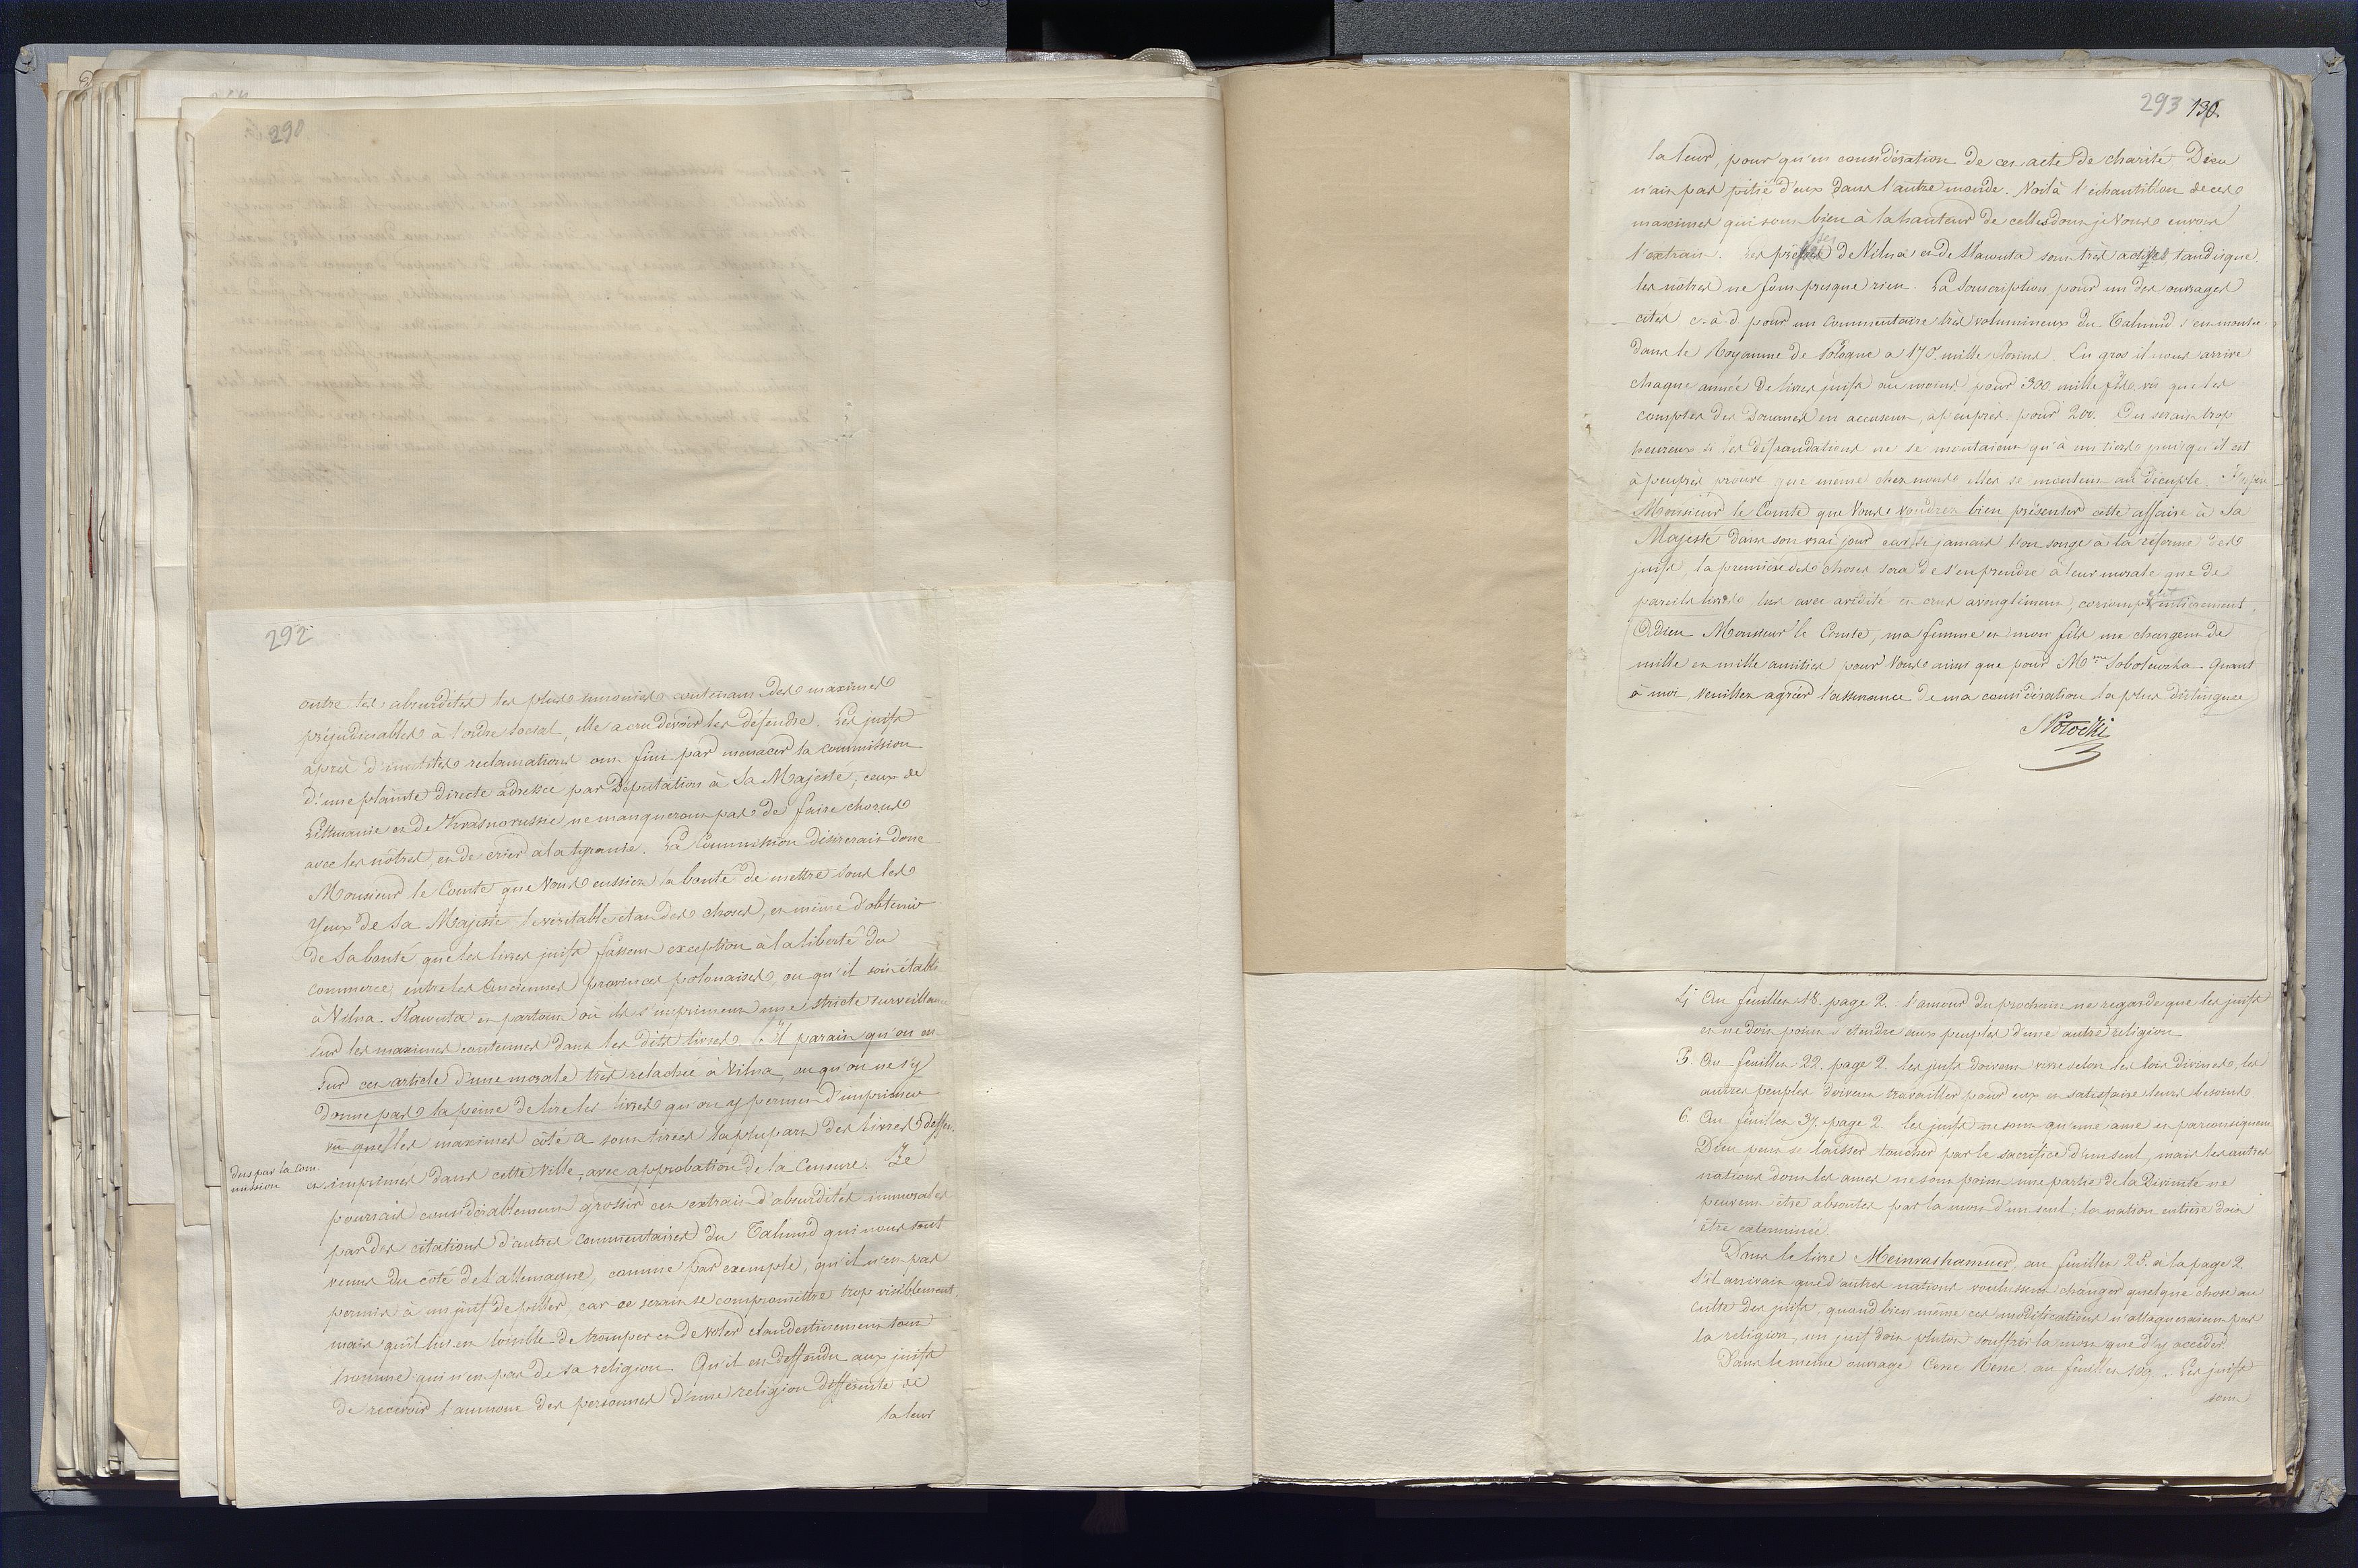 290
292
outre les absurdités les plus contenant des maximes
préjudiciables à l'ordre social, elle a cru devoir les défendre. Les juifs
après d'inutiles reclamations ont fini par menacer la commission
d'une plainte directe adressée par Députation à Sa Majesté; ceux de
Lithuanie et de Krasnorussie ne manqueront pas de faire chorus
avec les nôtres, et de crier a la tyrannie. La Commission désirerait donc
Monsieur le Comte que Vous eussiez la bonté de mettre sous les
yeux de Sa Majesté le véritable état des choses, et même d'obtenir
de Sa bonté que les livres juifs fassent exception à la liberté du
commerce entre les anciennes provinces polonaises, ou qu'il soit établi
à Vilna Slawuta et partout où ils s'impriment une stricte surveillance
sur les maximes contenues dans les dits livres. Il parait qu'on est
sur cet article d'une morale très relachée à Vilna, ou qu'on ne s'y
donne pas la peine de lire les livres qu'on y permet d'imprimer
vu que les maximes côté a sont tirées la plupart des livres deffen-
dus par la Com-
mission
et imprimés dans cette ville, avec approbation de la Censure. Je
pourrais considérablement grossir cet extrait d'absurdités immorales
par des citations d'autres commentaires du Talmud qui nous sont
venus du côté de l'allemagne, comme par exemple, qu'il n'est pas
permis à un juif de piller, car ce serait se compromettre trop visiblement,
mais qu'il lui est loisible de tromper et de voler clandestinement tout
homme qui n'est pas de sa religion. Qu'il est deffendu aux juifs
de recevoir l'aumone des personnes d'une religion différente de
la leur
293 130.
la leur, pour qu'en considération de cet acte de charité Dieu
n'ait pas pitié d'eux dans l'autre monde. Voilà l'échantillon de ces
maximes qui sont bien à la hauteur de celles dont je Vous envois
l'extrait. Les presses de Vilna et de Slawuta sont très actives, tandisque
les nôtres ne font presque rien. La Souscription pour un des ouvrages
cités c. à d. pour un Commentaire très volumineux du Talmud s'est montée
dans le Royaume de Pologne a 170. mille florins. En gros il nous arrive
chaque année de livres juifs au moins pour 300 mille fls vu que les
comptes des Douanes en accusent, à peuprès pour 200. On serait trop
heureux si les défraudations ne se montaient qu'à un tiers puisqu'il est
à peuprès prouvé que meme chez nous elles se montent au décuple. J'espère
Monsieur le Comte que Vous voudrez bien présenter cette affaire à Sa
Majesté dans son vrai jour car si jamais l'on songe à la réforme des
juifs, la première des choses sera de s'en prendre à leur morale que de
pareils livres lus avec avidité et crus avenglement, corrompent entièrement.
Adieu Monsieur le Comte, ma femme et mon fils me chargent de
mille et mille amitiés pour Vous ainsi que pour Mme Sobolewska. Quant
à moi, veuillez agréer l'assurance de ma considération la plus distinguée
S Potocki
4. Au feuillet 18. page 2.: l'amour du prochain ne regarde que les juifs
et ne doit point s'étendre aux peuples d'une autre religion
5. Au feuillet 22. page 2. les juifs doivent vivre selon les lois divines, les
autres peuples doivent travailler pour eux et satisfaire leurs besoins.
6. Au feuillet 37. page 2. les juifs ne sont qu'une ame et par conséquent
Dieu peut se laisser toucher par le sacrifice d'un seul, mais les autres
nations dont les ames ne sont point une partie de la Divinité ne
peuvent être absoutes par la mort d'un seul; la nation entière doit
être exterminée.
Dans le livre Meinrashamuer, au feuillet 25. à la page 2.
s'il arrivait que d'autres nations voulussent changer quelque chose au
culte des juifs, quand bien même ces modifications n'attaqueraient pas
la religion, un juif doit plutot souffrir la mort que d'y accéder.
Dans le même ouvrage au feuillet 109. Les juifs
sont